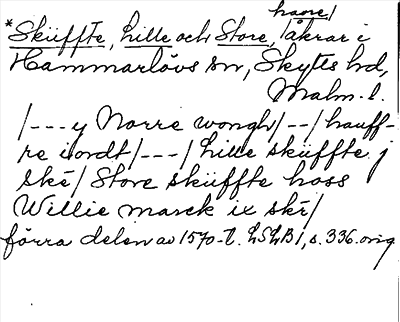 have/
*Sküffte, Lille och Store, /åkrar i
Hammarlövs sn, Skytts hd,
Malm. l.
/---y Norre wongh/--/ hauff-
re iordt/---/ Lille sküffte j
ské/ Store sküffte hoss
Willie marck ix ské/
förra delen av 1570-t. LSLB1, s. 336. orig.